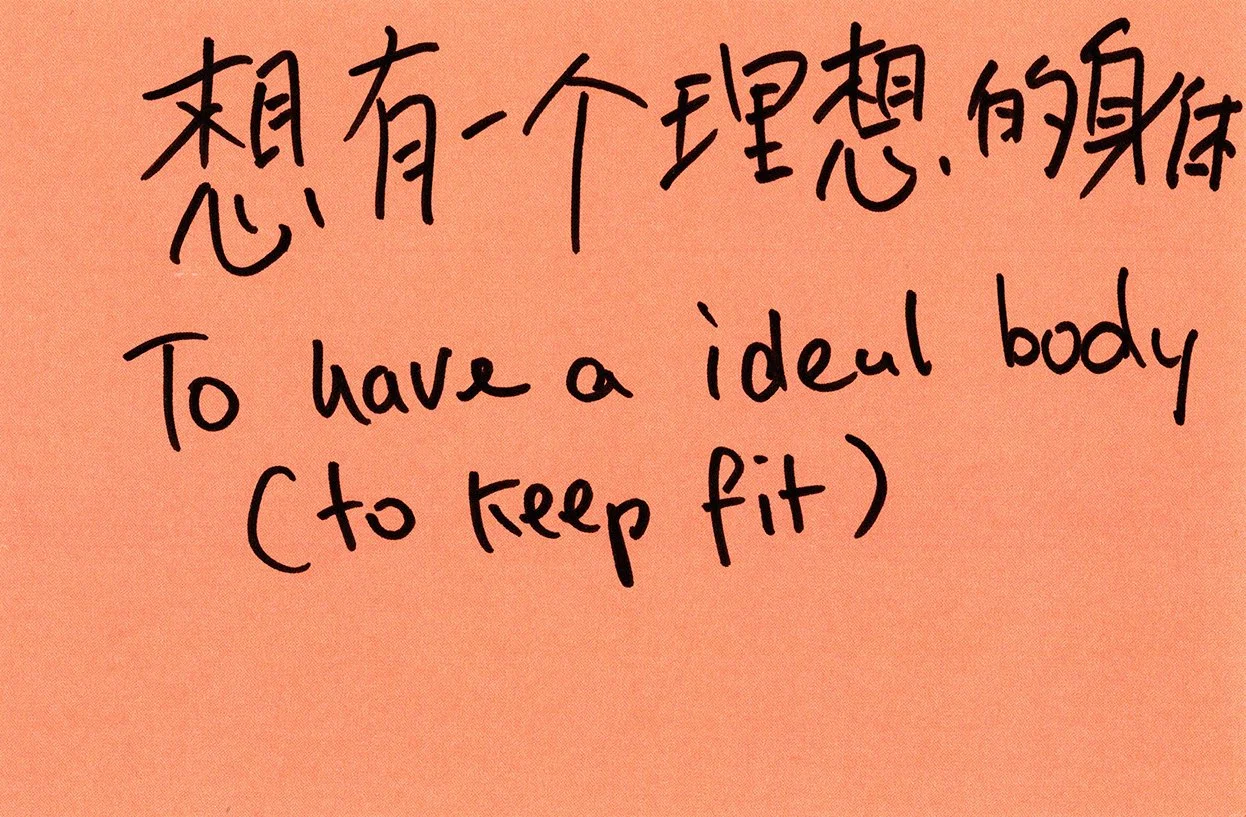 想有一个理想的身体
To have a ideal body
(to keep fit)